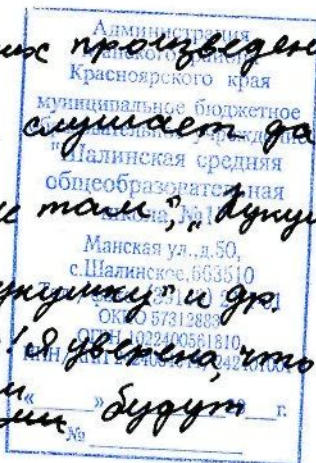 Администрация
Манского района
Красноярского края
муниципальное бюджетное
образовательное учреждение
"Шалинская средняя
общеобразовательная
школа №1"
Манская ул., д.50,
с.Шалинское, 663510
ОКПО 57312883
ОГРН 1022400561810
« » г.
№
их произведен
слушает да
там", "Куку
кукушку" и др.
! Я уверена, что
будут